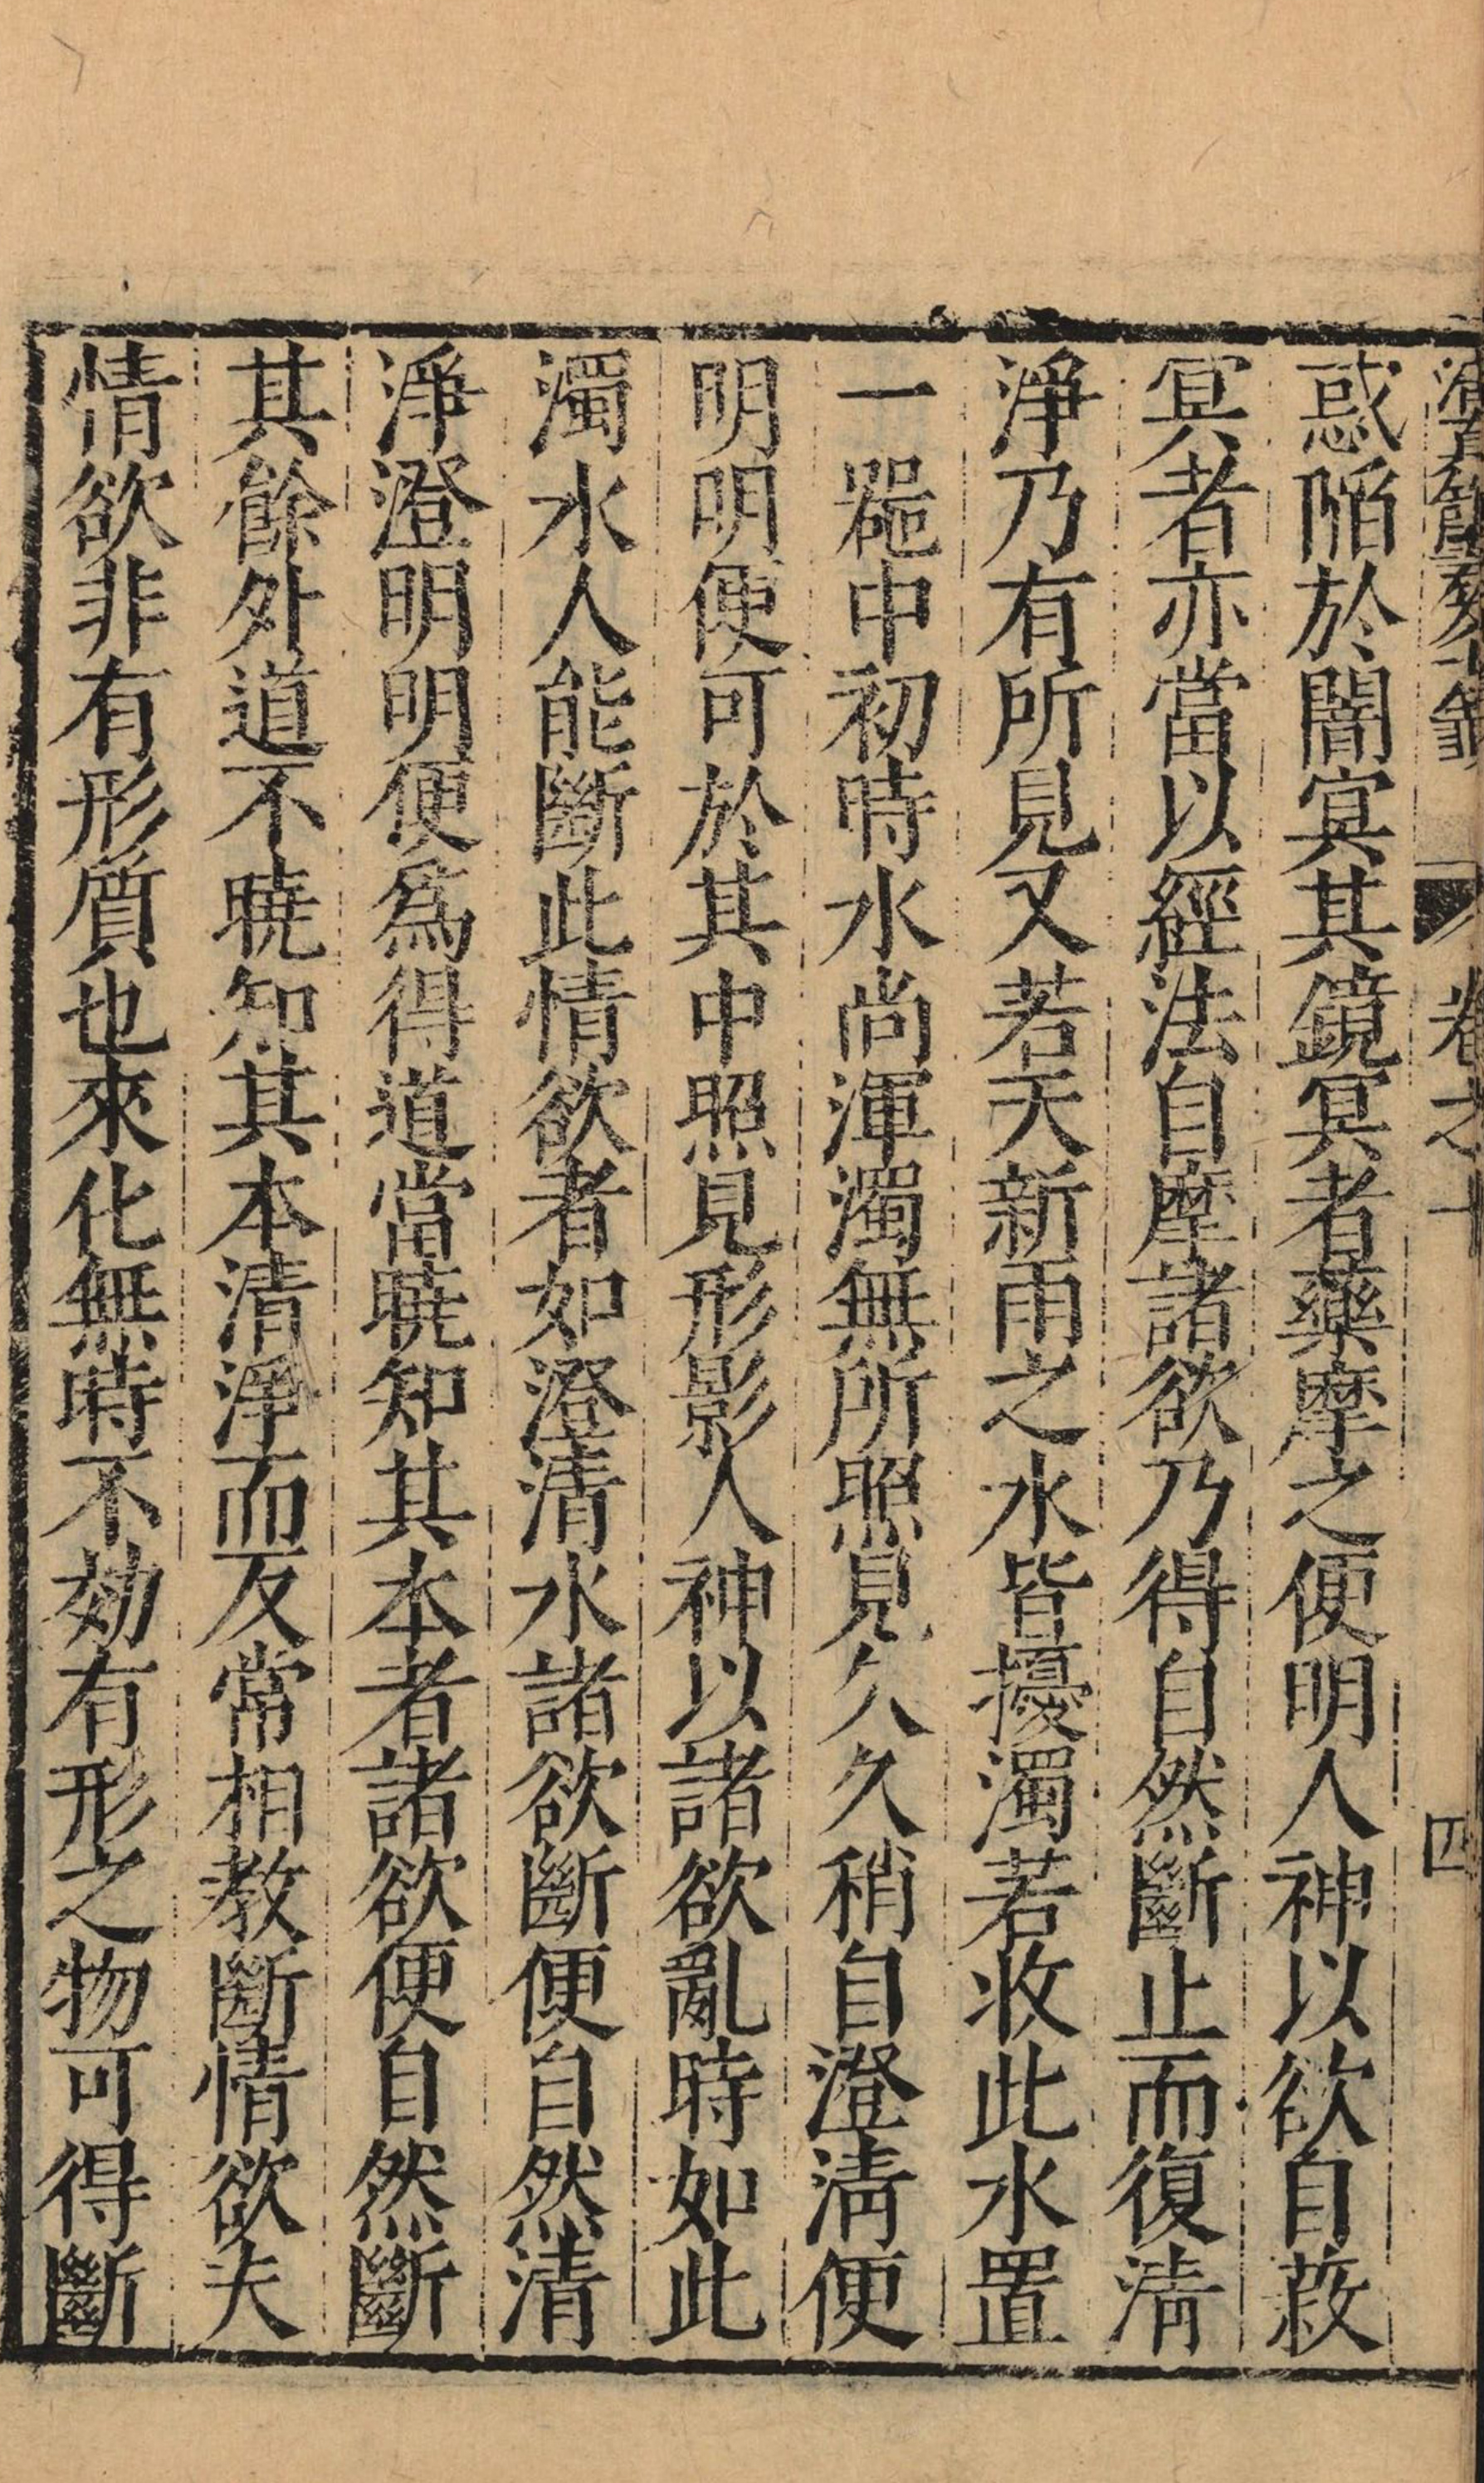 卷之十
四
惑陷於闇冥其鏡冥者藥摩之便明人神以欲自蔽
冥者亦當以經法自摩諸欲乃得自然斷止而復清
淨乃有所見又若天新雨之水皆擾濁若收此水置
一器中初時水尚渾濁無所照見久久稍自澄清便
明明便可於其中照見形影人神以諸欲亂時如此
濁水人能斷此情欲者如澄清水諸欲斷便自然清
淨澄明明便爲得道當曉知其本者諸欲便自然斷
其餘外道不曉知其本清淨而反常相教斷情欲夫
情欲非有形質也來化無時不効有形之物可得斷